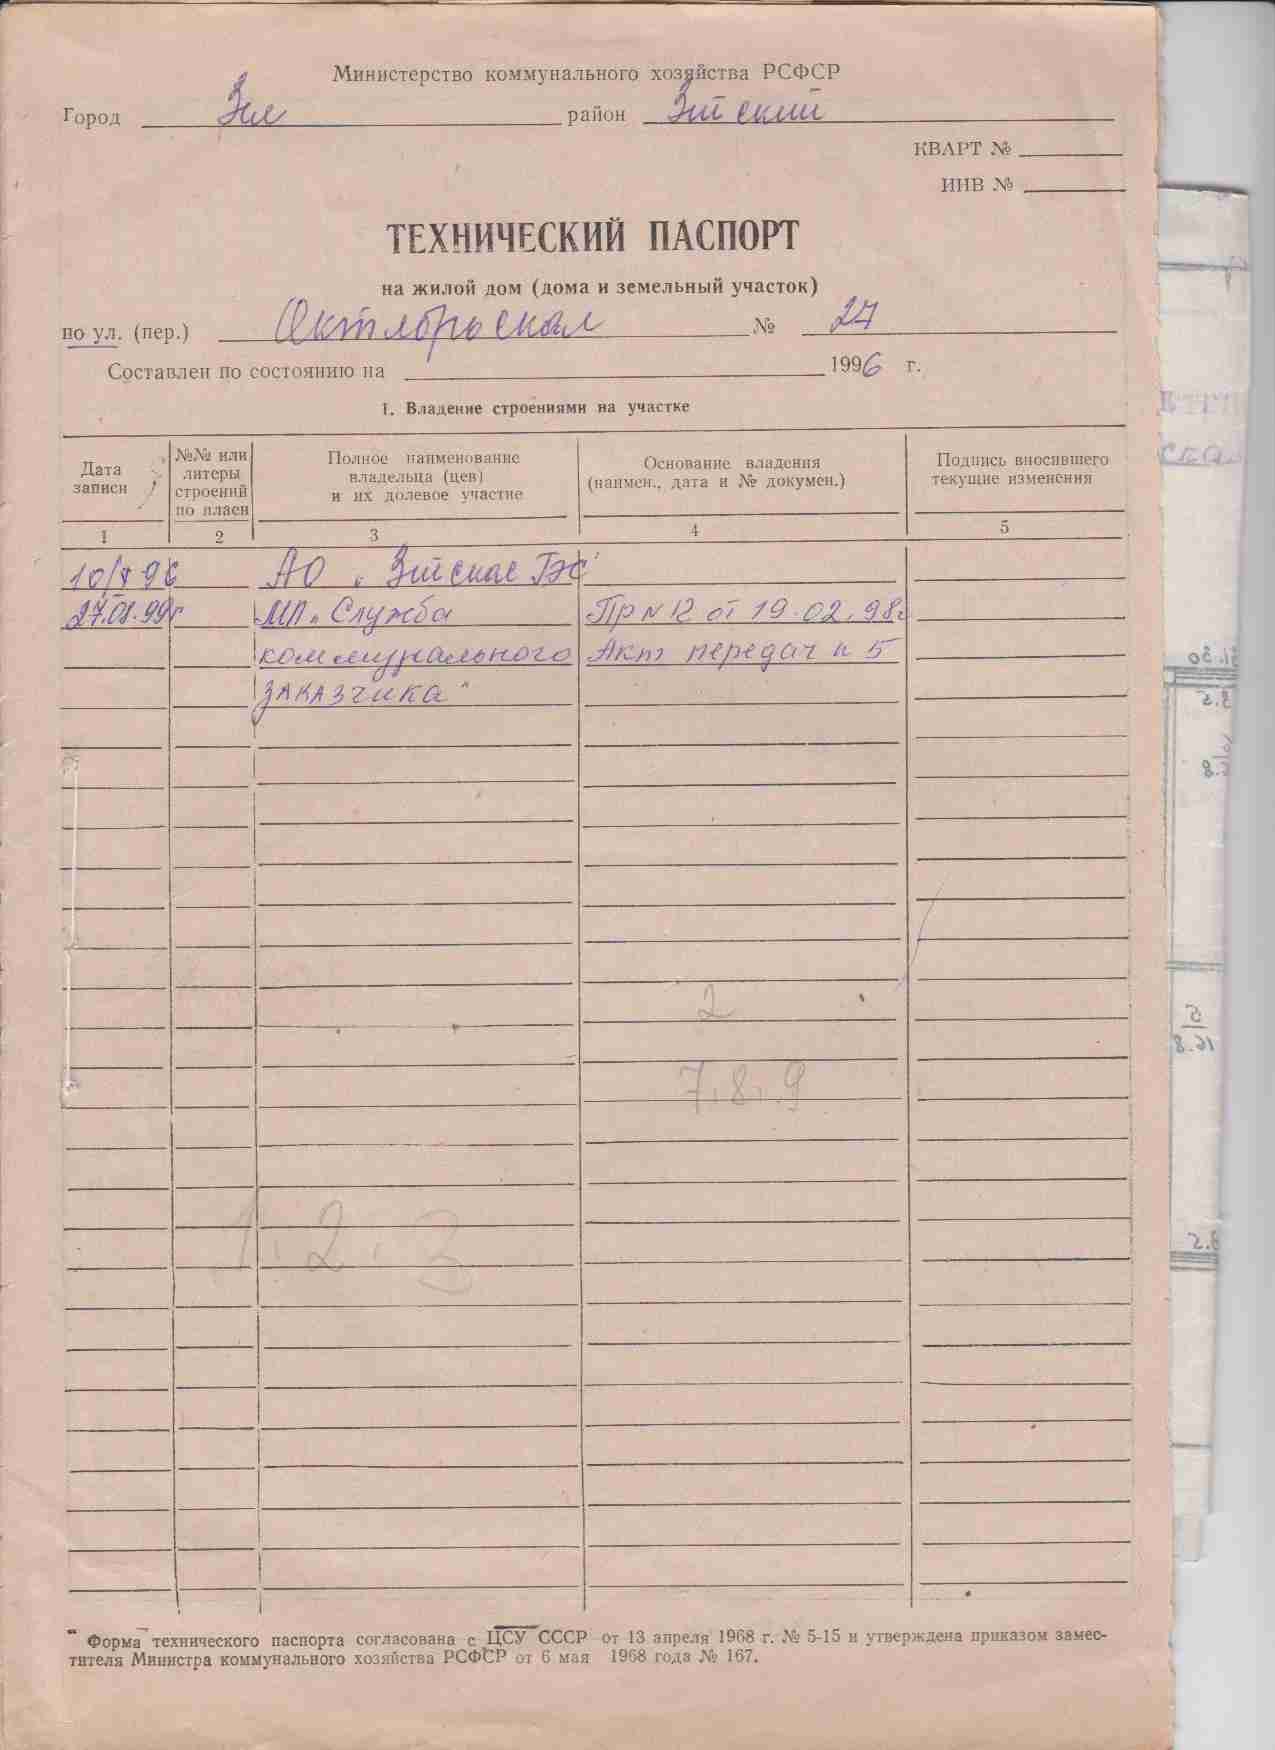 Министерство коммунального хозяйства РСФСР
Город Зея район Зейский
КВАРТ №
ИНВ №
ТЕХНИЧЕСКИЙ ПАСПОРТ
на жилой дом (дома и земельный участок)
по ул. (пер.) Октябрьская № 27
Составлен по состоянию на 1996 г.
I. Владение строениями на участке
Дата записи
№№ или литеры строений по плаен
Полное наименование владельца (цев) и их долевое участие
Основание владения (наимен., дата и № докумен.)
Подпись вносившего текущие изменения
1 2 3 4 5
10/X 96 АО "Зейская ГЭС"
27.01.99г МП "Служба Пр N 12 от 19.02.98г
коммунального Акт передач н 5
заказчика"
2
7.8.9
1. 2. 3
Форма технического паспорта согласована с ЦСУ СССР от 13 апреля 1968 г. № 5-15 и утверждена приказом замес-
тителя Министра коммунального хозяйства РСФСР от 6 мая 1968 года № 167.